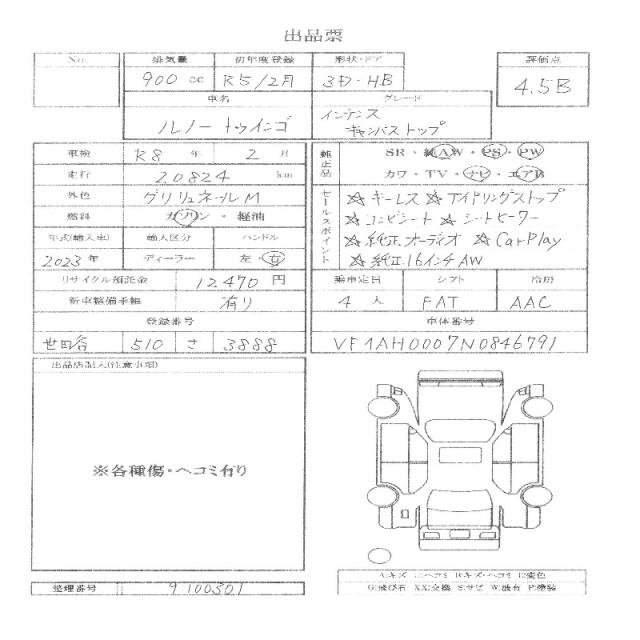 出品票
No. 排気量 初年度登録 形状・ドア 評価点
900 cc R5/2月 3D・HB 4.5B
車名 グレード
ルノー トゥインゴ インテンス
キャンバストップ
車検 R8 年 2 月
走行 20824 km
外色 グリリュネールM
燃料 ガソリン ・ 軽油
年式(輸入車) 輸入区分 ハンドル
2023年 ディーラー 左・右
リサイクル預託金 12,470 円
新車整備手帳 有り
登録番号
世田谷 510 さ 3888
純正品 SR ・ 純AW ・ PS ・ PW
カワ ・ TV ・ ナビ ・ エアB
セールスポイント
☆ キーレス ☆ アイドリングストップ
☆ コンビシート ☆ シートヒーター
☆ 純正オーディオ ☆ CarPlay
☆ 純正16インチAW
乗車定員 シフト 冷房
4 人 FAT AAC
車体番号
VF1AH0007N0846791
出品店記入(注意事項)
※各種傷・ヘコミ有り
A:キズ U:ヘコミ B:キズ・ヘコミ C:変色
G:飛び石 XX:交換 S:サビ W:波有 P:塗装
整理番号 9100501